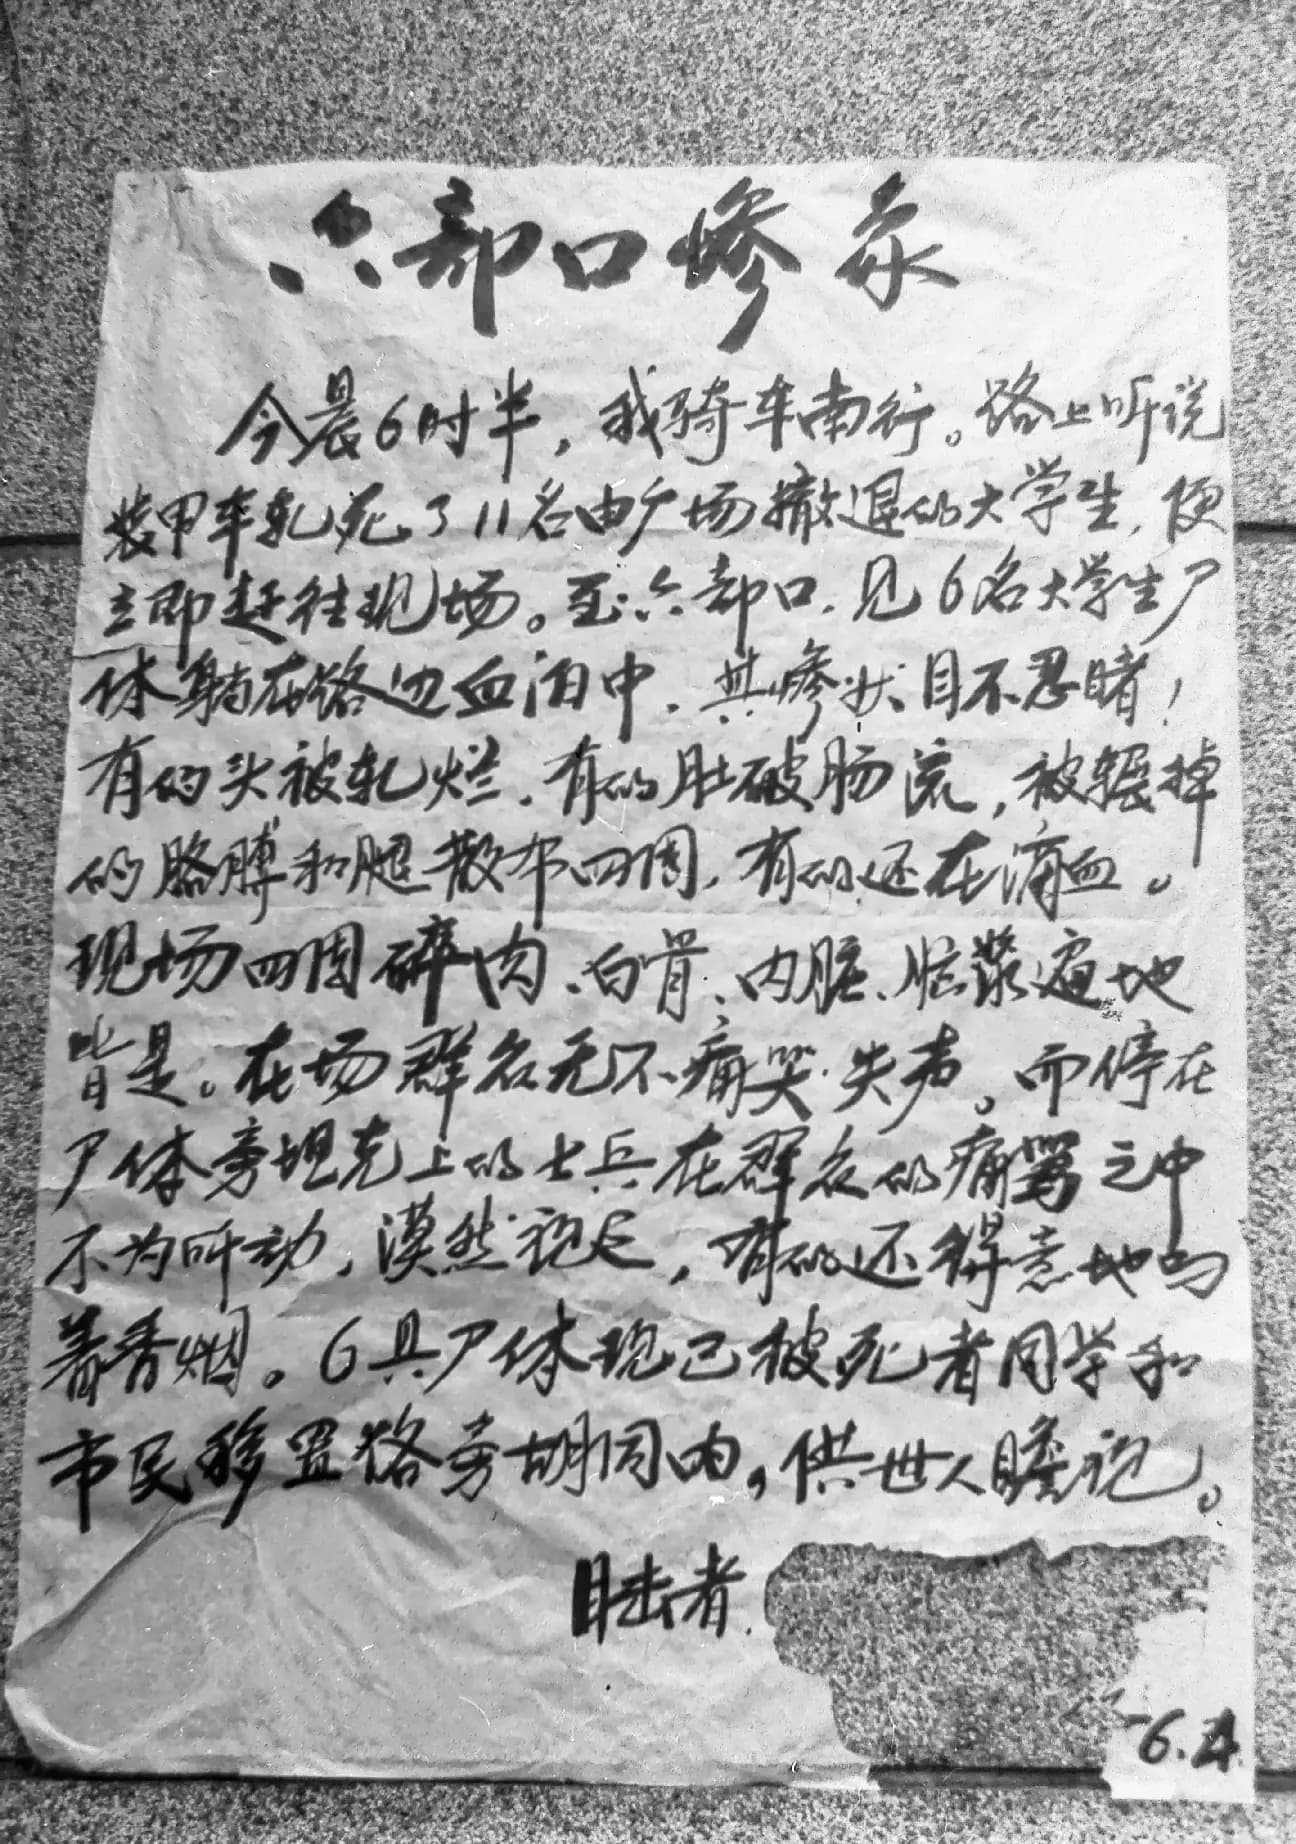 六部口惨象
今晨6时半，我骑车南行。路上听说
装甲车轧死了11名由广场撤退的大学生，便
立即赶往现场。至六部口，见6名大学生尸
体躺在路边血泊中，其惨状目不忍睹！
有的头被轧烂，有的肚破肠流，被辗掉
的胳膊和腿散布四周，有的还在滴血。
现场四周碎肉、白骨、内脏、脑浆遍地
皆是。在场群众无不痛哭失声。而停在
尸体旁坦克上的士兵在群众的痛骂之中
不为所动，漠然视之，有的还得意地叼
着香烟。6具尸体现已被死者同学和
市民移置路旁胡同内，供世人瞻视。
目击者
6.4